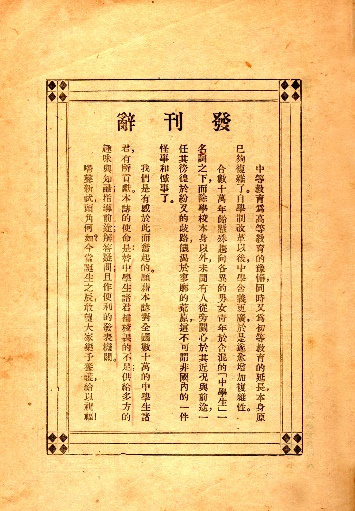 發刊辭
中等教育爲高等教育的豫備,同時又爲初等教育的延長,本身原
已夠複雜了。自學制改革以後,中學含義更廣,於是遂愈增加複雜性。
合數十萬年齡懸殊趨向各異的男女青年於含混的「中學生」一
名詞之下,而除學校本身以外,未聞有人從旁關心於其近況與前途,一
任其徬徨於紛叉的歧路,飢渴於寥廓的荒原,這不可謂非國內的一件
怪事和憾事了。
我們是有感於此而奮起的。願藉本誌對全國數十萬的中學生諸
君,有所貢獻。本誌的使命是:替中學生諸君補校課的不足;供給多方的
趣味與知識;指導前途;解答疑問;且作便利的發表機關。
啼聲新試,頭角何如?今當誕生之辰,敢望大家樂予養護,給以祝福!